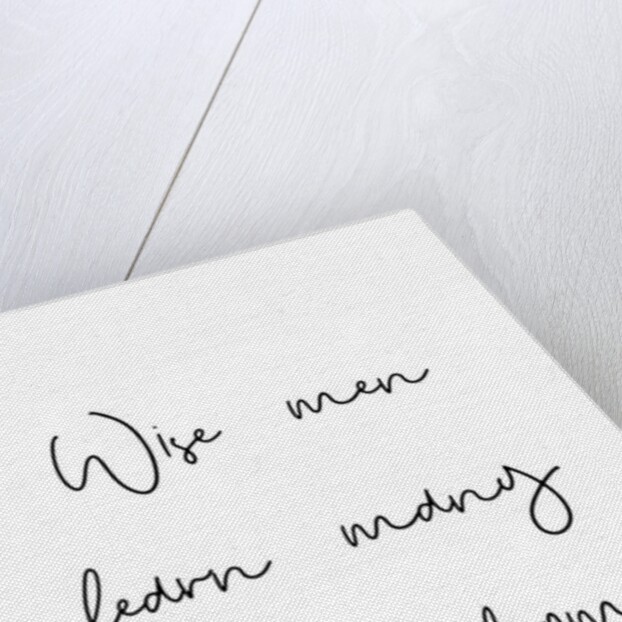 Wise men
learn many